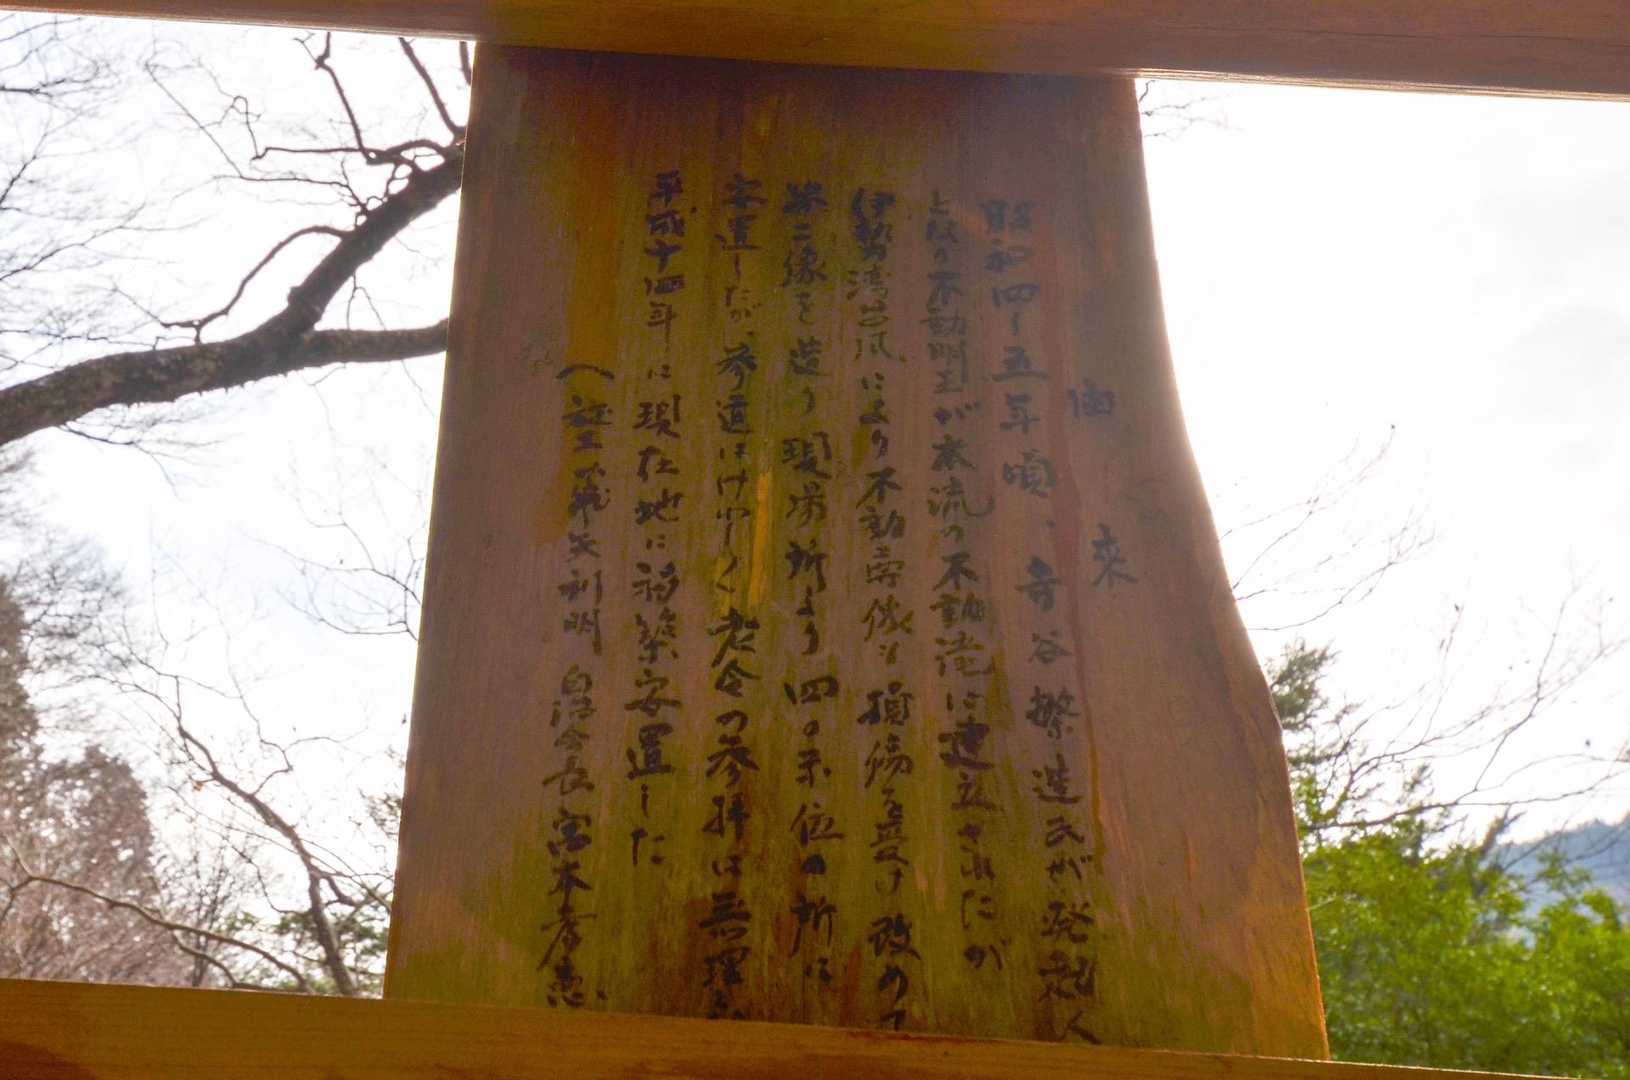 由来
昭和四、五年頃、寺谷繁造氏が発起人
不動明王が本流の不動滝に建立されたが
伊勢湾台風により不動尊像も損傷を受け改めて
第二像を造り現場所より四〇米位の所に
安置したが、参道はけわしく老令の参拝は無理
平成十四年に現在地に移築安置した
矢利明 自治会長 宮本孝恵